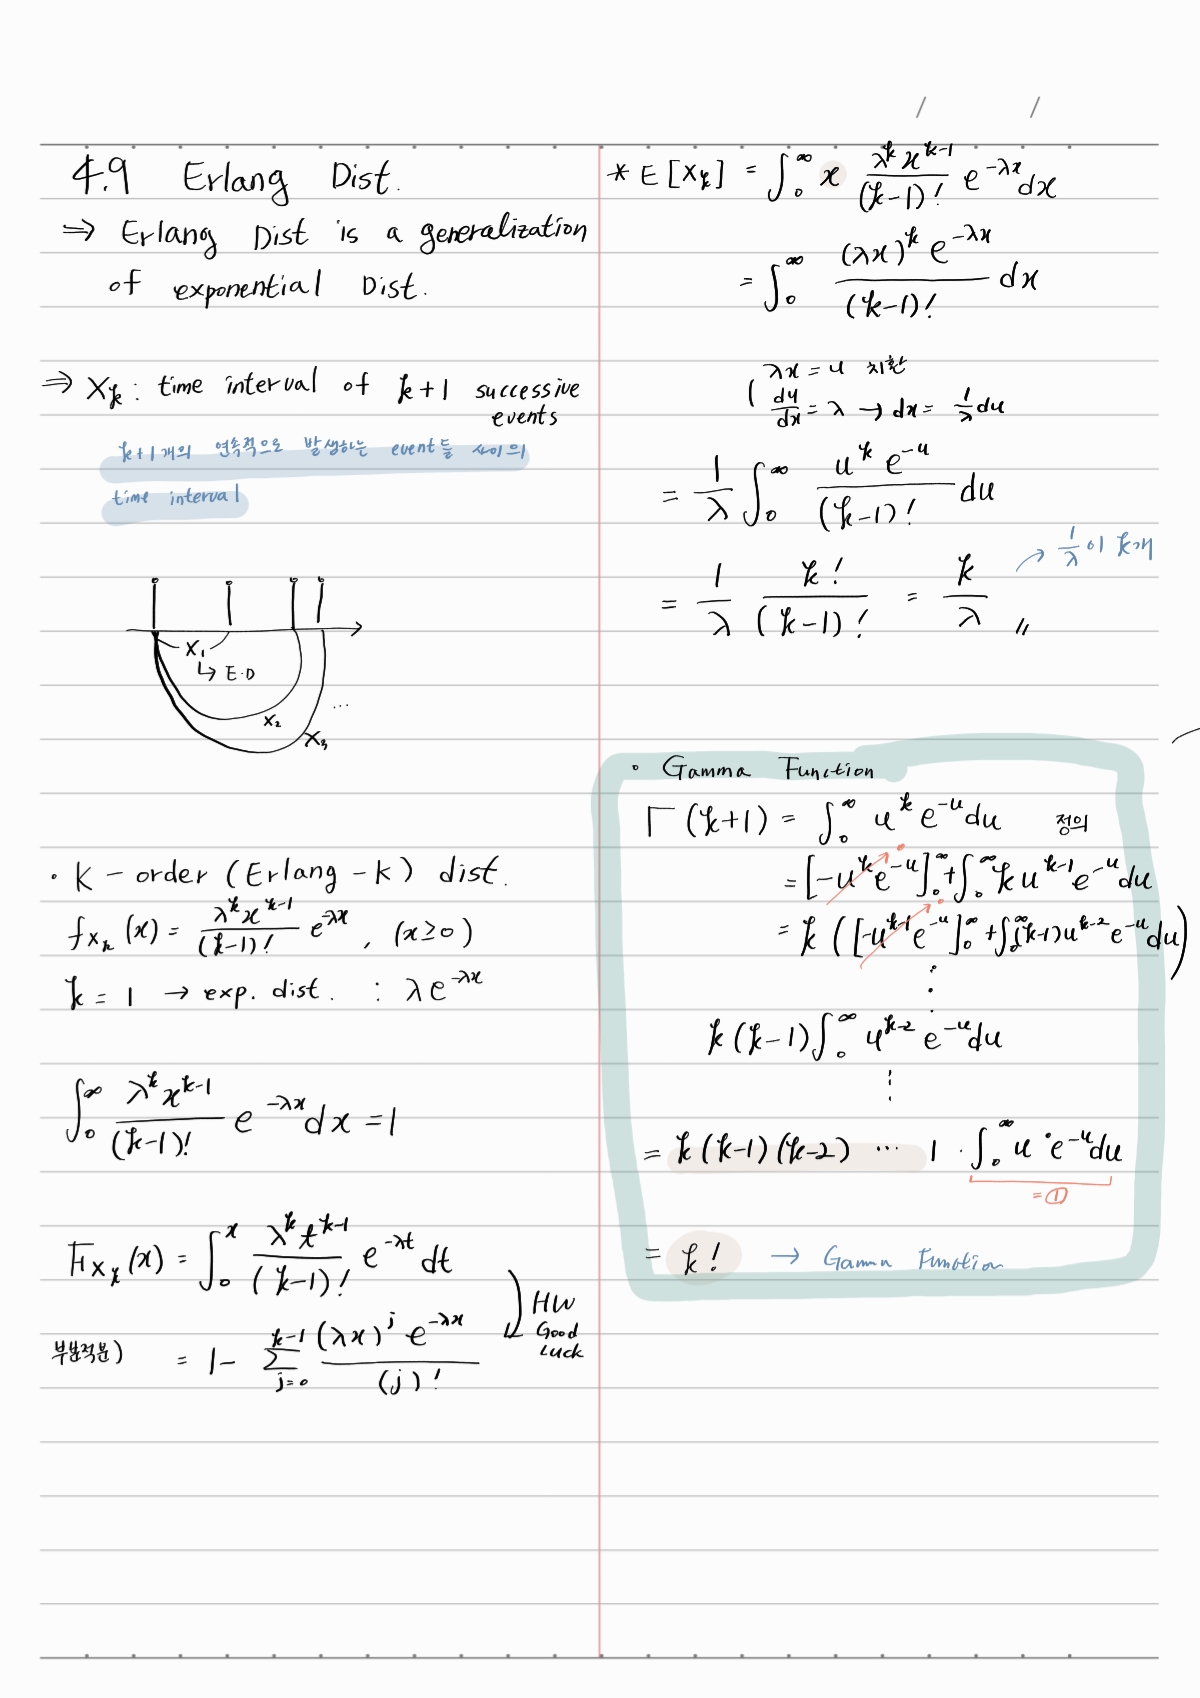 4.9 Erlang Dist.
⇒ Erlang Dist is a generalization
of exponential Dist.
⇒ X_k : time interval of k+1 successive
events
k+1개의 연속적으로 발생하는 event들 사이의
time interval
X₁
↳ E.D
X₂
X₃
...
• K - order (Erlang - k) dist.
f_{X_k}(x) = \frac{λ^k x^{k-1}}{(k-1)!} e^{-λx} , (x≥0)
k = 1 → exp. dist. : λe^{-λx}
∫_0^∞ \frac{λ^k x^{k-1}}{(k-1)!} e^{-λx} dx = 1
F_{X_k}(x) = ∫_0^x \frac{λ^k t^{k-1}}{(k-1)!} e^{-λt} dt
HW
Good
Luck
부분적분) = 1 - Σ_{j=0}^{k-1} \frac{(λx)^j e^{-λx}}{(j)!}
* E[X_k] = ∫_0^∞ x \frac{λ^k x^{k-1}}{(k-1)!} e^{-λx} dx
= ∫_0^∞ \frac{(λx)^k e^{-λx}}{(k-1)!} dx
( λx = u 치환
\frac{du}{dx} = λ → dx = \frac{1}{λ} du
= \frac{1}{λ} ∫_0^∞ \frac{u^k e^{-u}}{(k-1)!} du
= \frac{1}{λ} \frac{k!}{(k-1)!} = \frac{k}{λ} 〃
→ \frac{1}{λ}이 k개
• Gamma Function
Γ(k+1) = ∫_0^∞ u^k e^{-u} du 정의
= [-u^k e^{-u}]_0^∞ + ∫_0^∞ k u^{k-1} e^{-u} du
= k ([-u^{k-1} e^{-u}]_0^∞ + ∫_0^∞ (k-1) u^{k-2} e^{-u} du)
⋮
k(k-1) ∫_0^∞ u^{k-2} e^{-u} du
⋮
= k(k-1)(k-2) ⋯ 1 · ∫_0^∞ u^0 e^{-u} du
= ①
= k! → Gamma Function